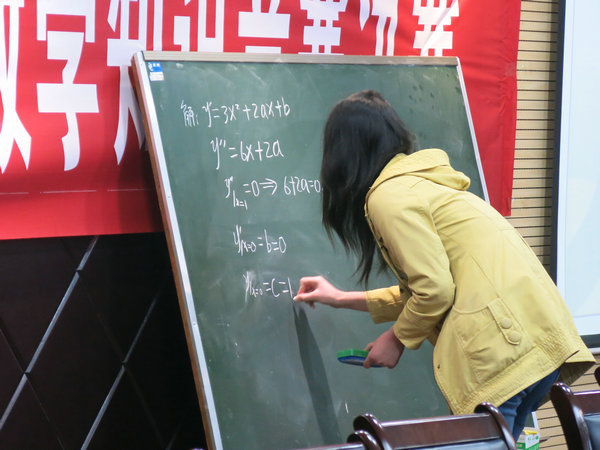 数学
解: y'=3x²+2ax+b
y''=6x+2a
y''|x=1=0⇒6+2a=0
y'|x=0=b=0
y|x=0=c=